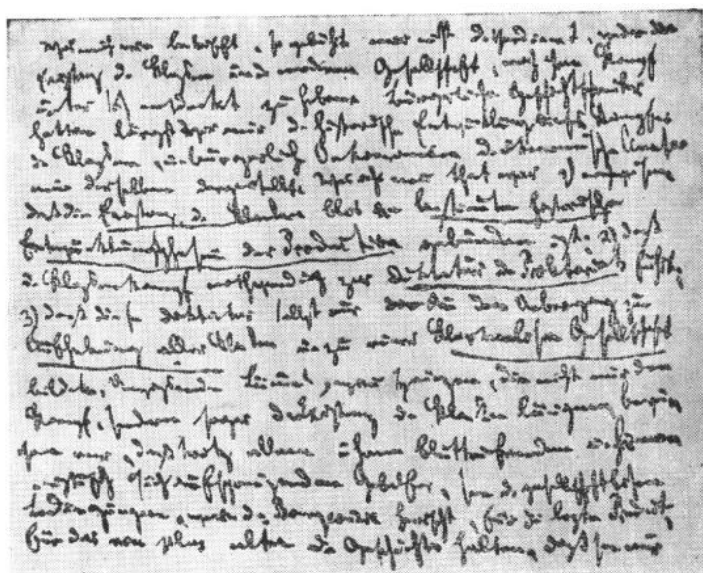 Was mich nun betrifft, so gebührt mir nicht das Verdienst, weder die
Existenz der Klassen in der modernen Gesellschaft, noch ihren Kampf
unter sich entdeckt zu haben. Bürgerliche Geschichtschreiber
hatten längst vor mir die historische Entwicklung dieses Kampfes
der Klassen, u. bürgerliche Oekonomen die ökonomische Anatomie
derselben dargestellt. Was ich neu that war 1) nachzuweisen
daß die Existenz der Klassen blos an bestimmte historische
Entwicklungsphasen der Production gebunden ist; 2) daß
der Klassenkampf nothwendig zur Diktatur des Proletariats führt;
3) daß diese Diktatur selbst nur den Uebergang zur
Aufhebung aller Klassen u. zu einer klassenlosen Gesellschaft
bildet. Unwissende Lümmel, wie Heinzen, die nicht nur den
Kampf, sondern sogar die Existenz der Klassen läugnen, beweisen
nur, daß trotz
sich aufspreizenden sie die gesellschaftlichen
Bedingungen, worin die Bourgeoisie herrscht, für das letzte Product,
für das non plus ultra der Geschichte halten, daß sie nur